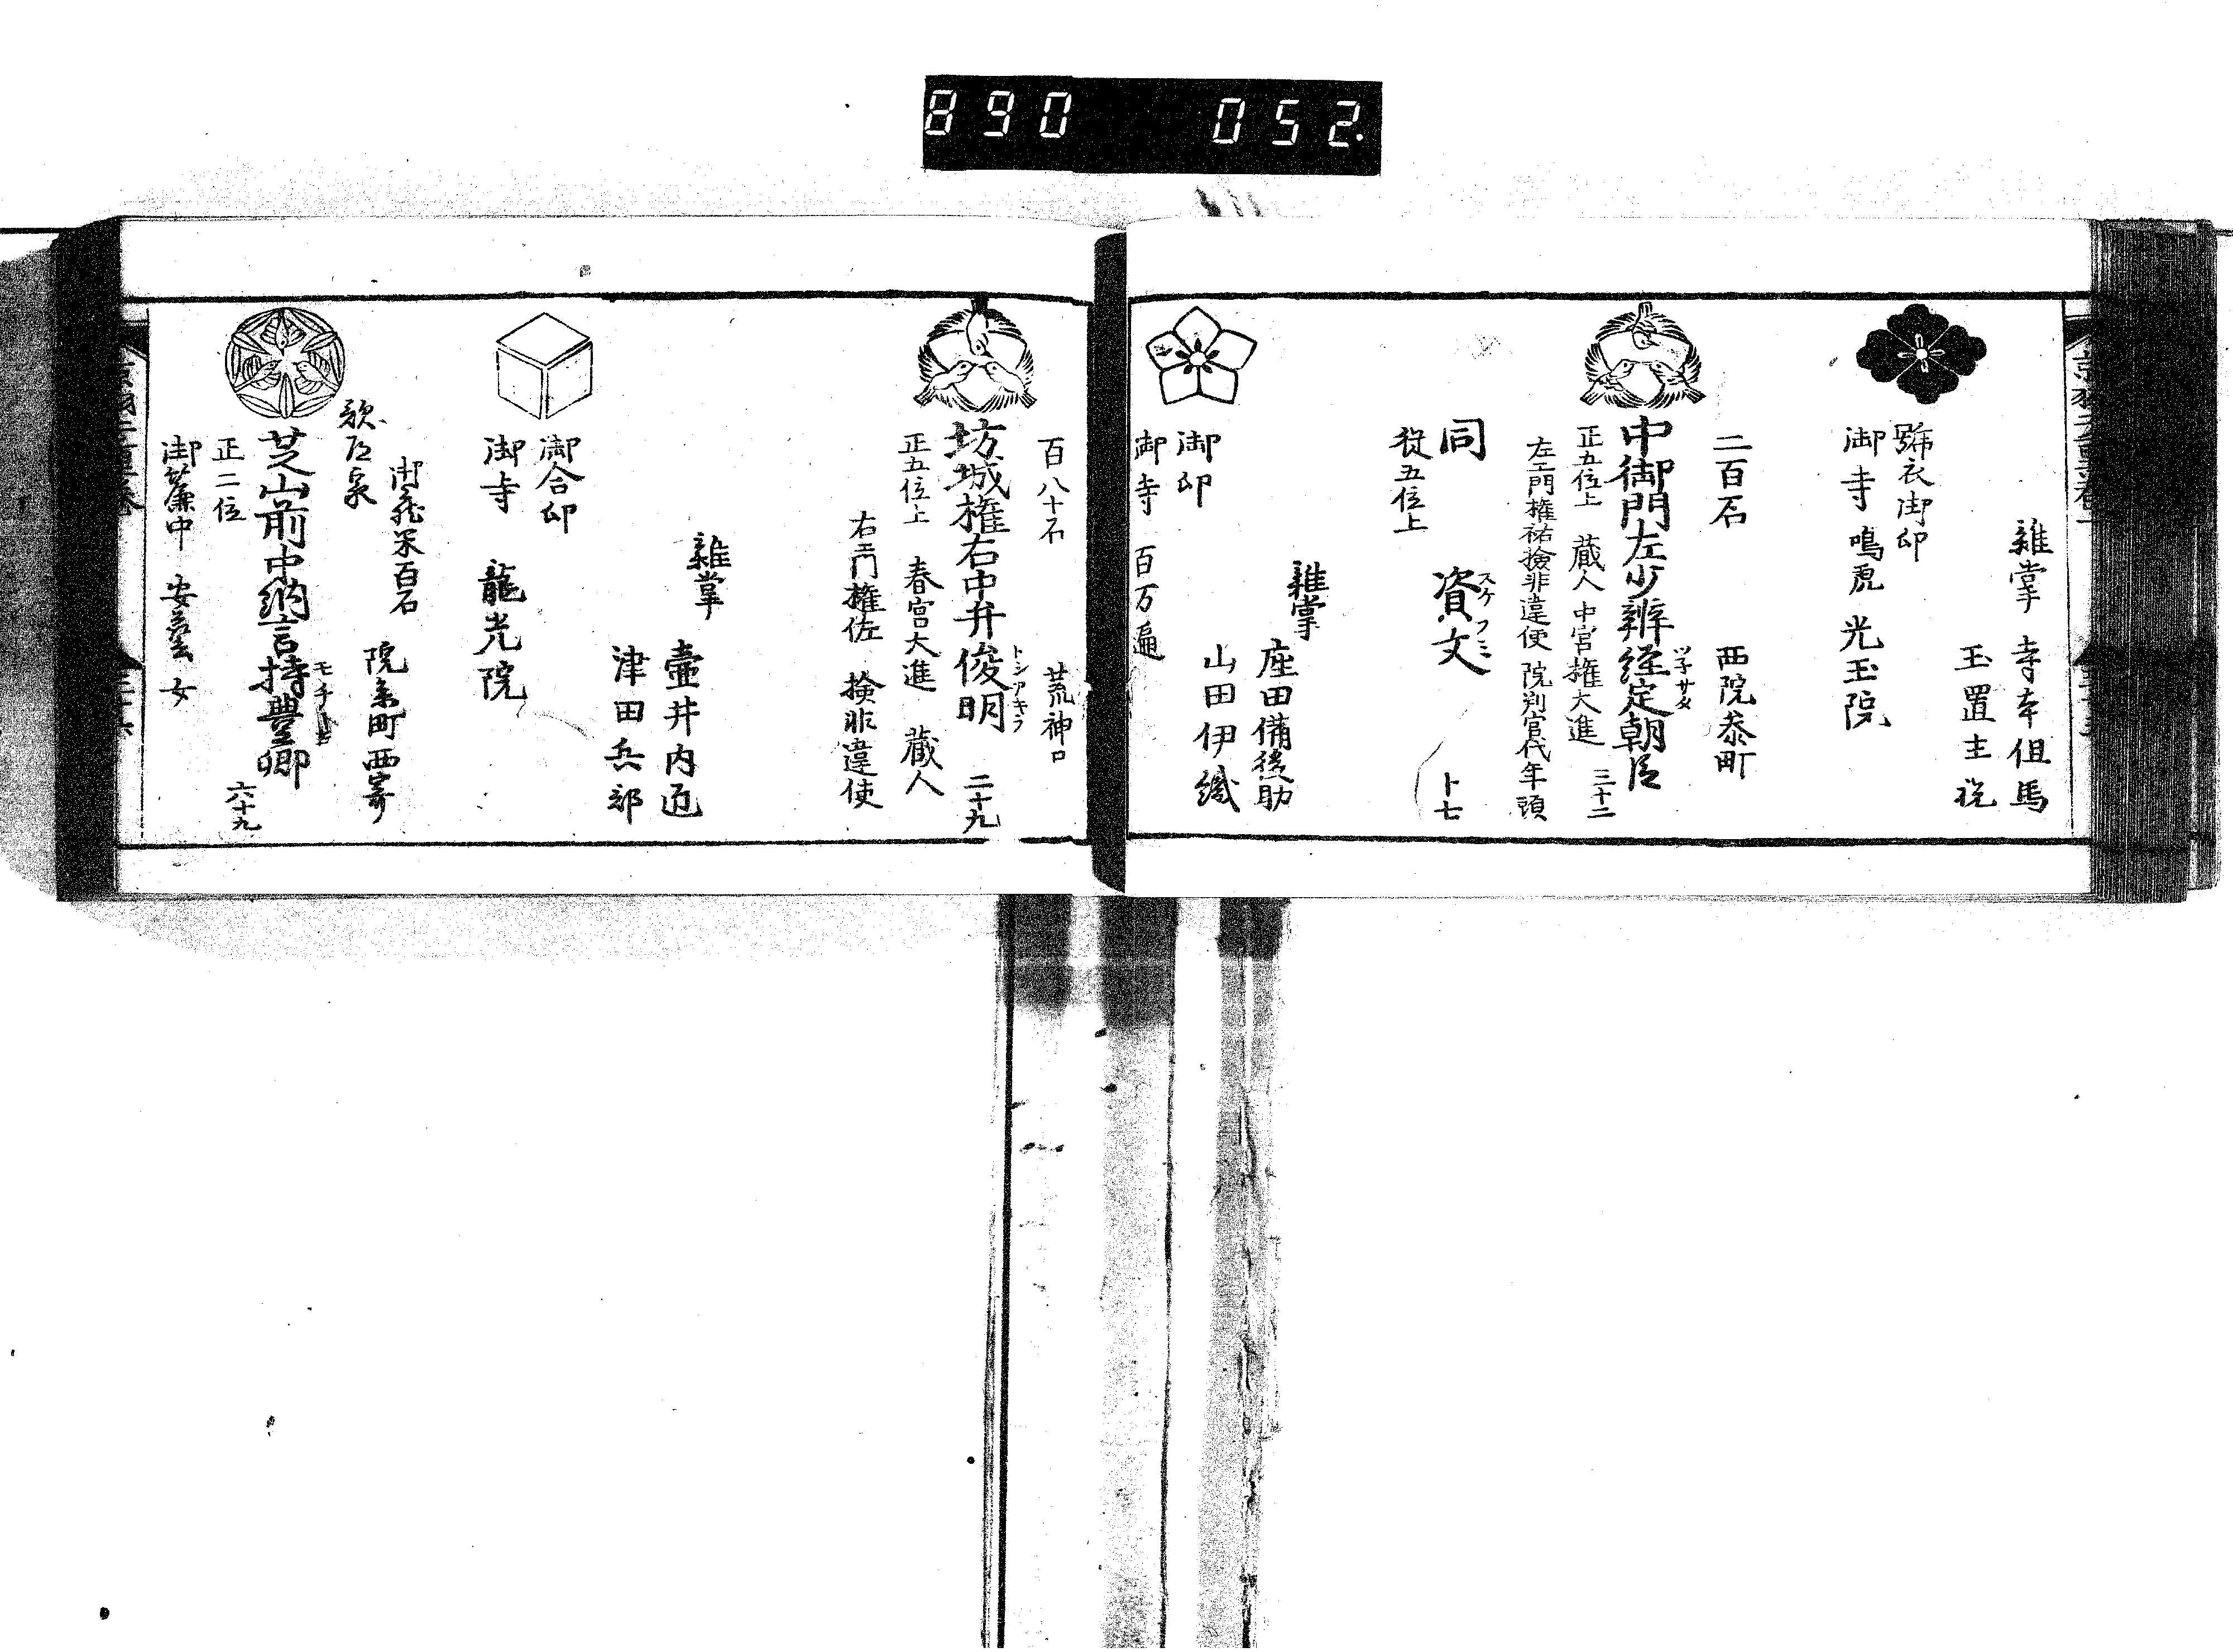 890 052
雑掌 寺本但馬
玉置主税
号衣御印
御寺 鳴虎 光玉院
二百石 西院参町
中御門左少辨経定朝臣
ツネサダ
正五位上 蔵人 中宮権大進 三十二
左衛門権佑検非違使 院判官代年頭
同 資文 十七
スケフミ
従五位上
雑掌 座田備後助
山田伊織
御印
御寺 百万遍
百八十石 荒神口
坊城権右中弁俊明 二十九
トシアキラ
正五位上 春宮大進 蔵人
右衛門権佐 検非違使
雑掌 壷井内匠
津田兵部
御合印
御寺 龍光院
御蔵米百石 院参町西寄
芝山前中納言持豊卿 六十九
正二位
御簾中 安芸女